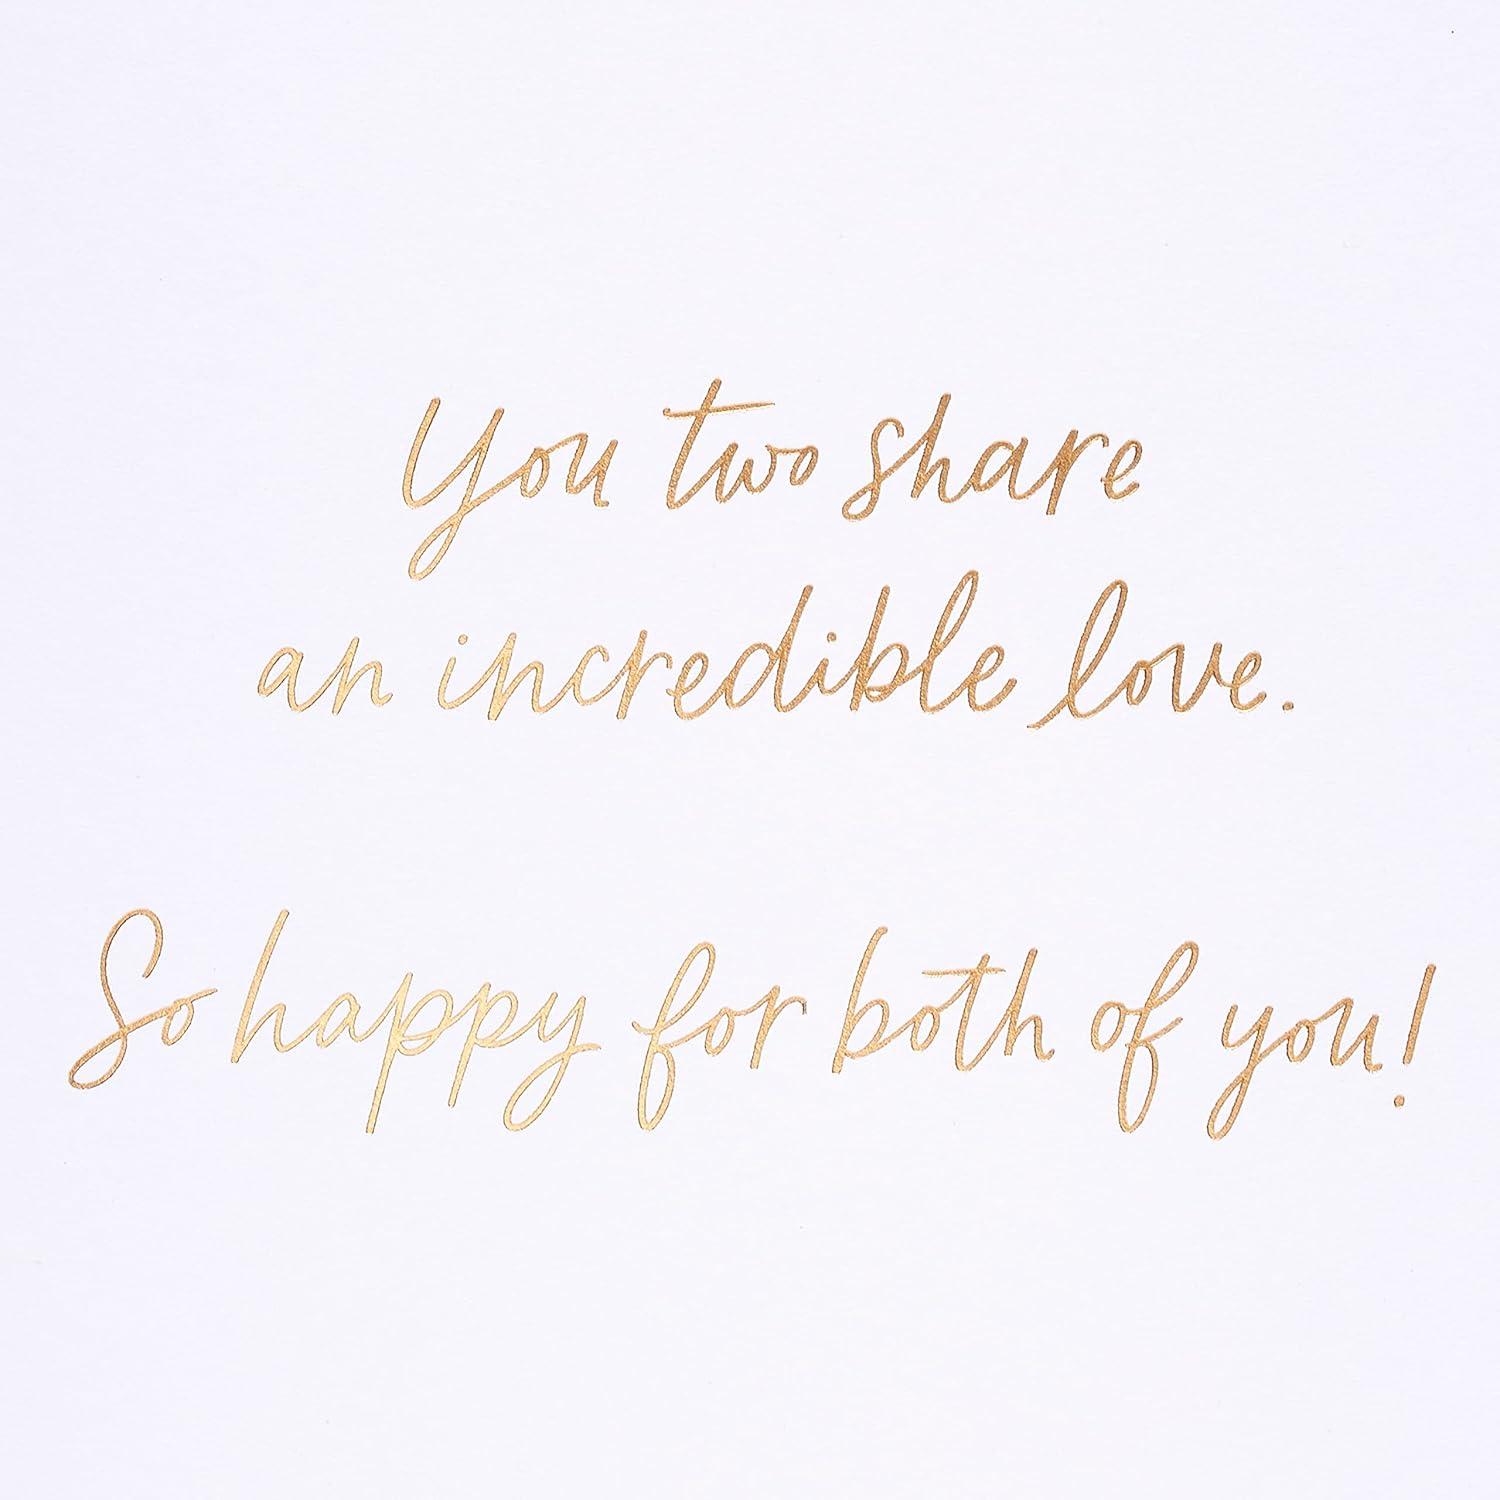 You two share
an incredible love.
So happy for both of you!